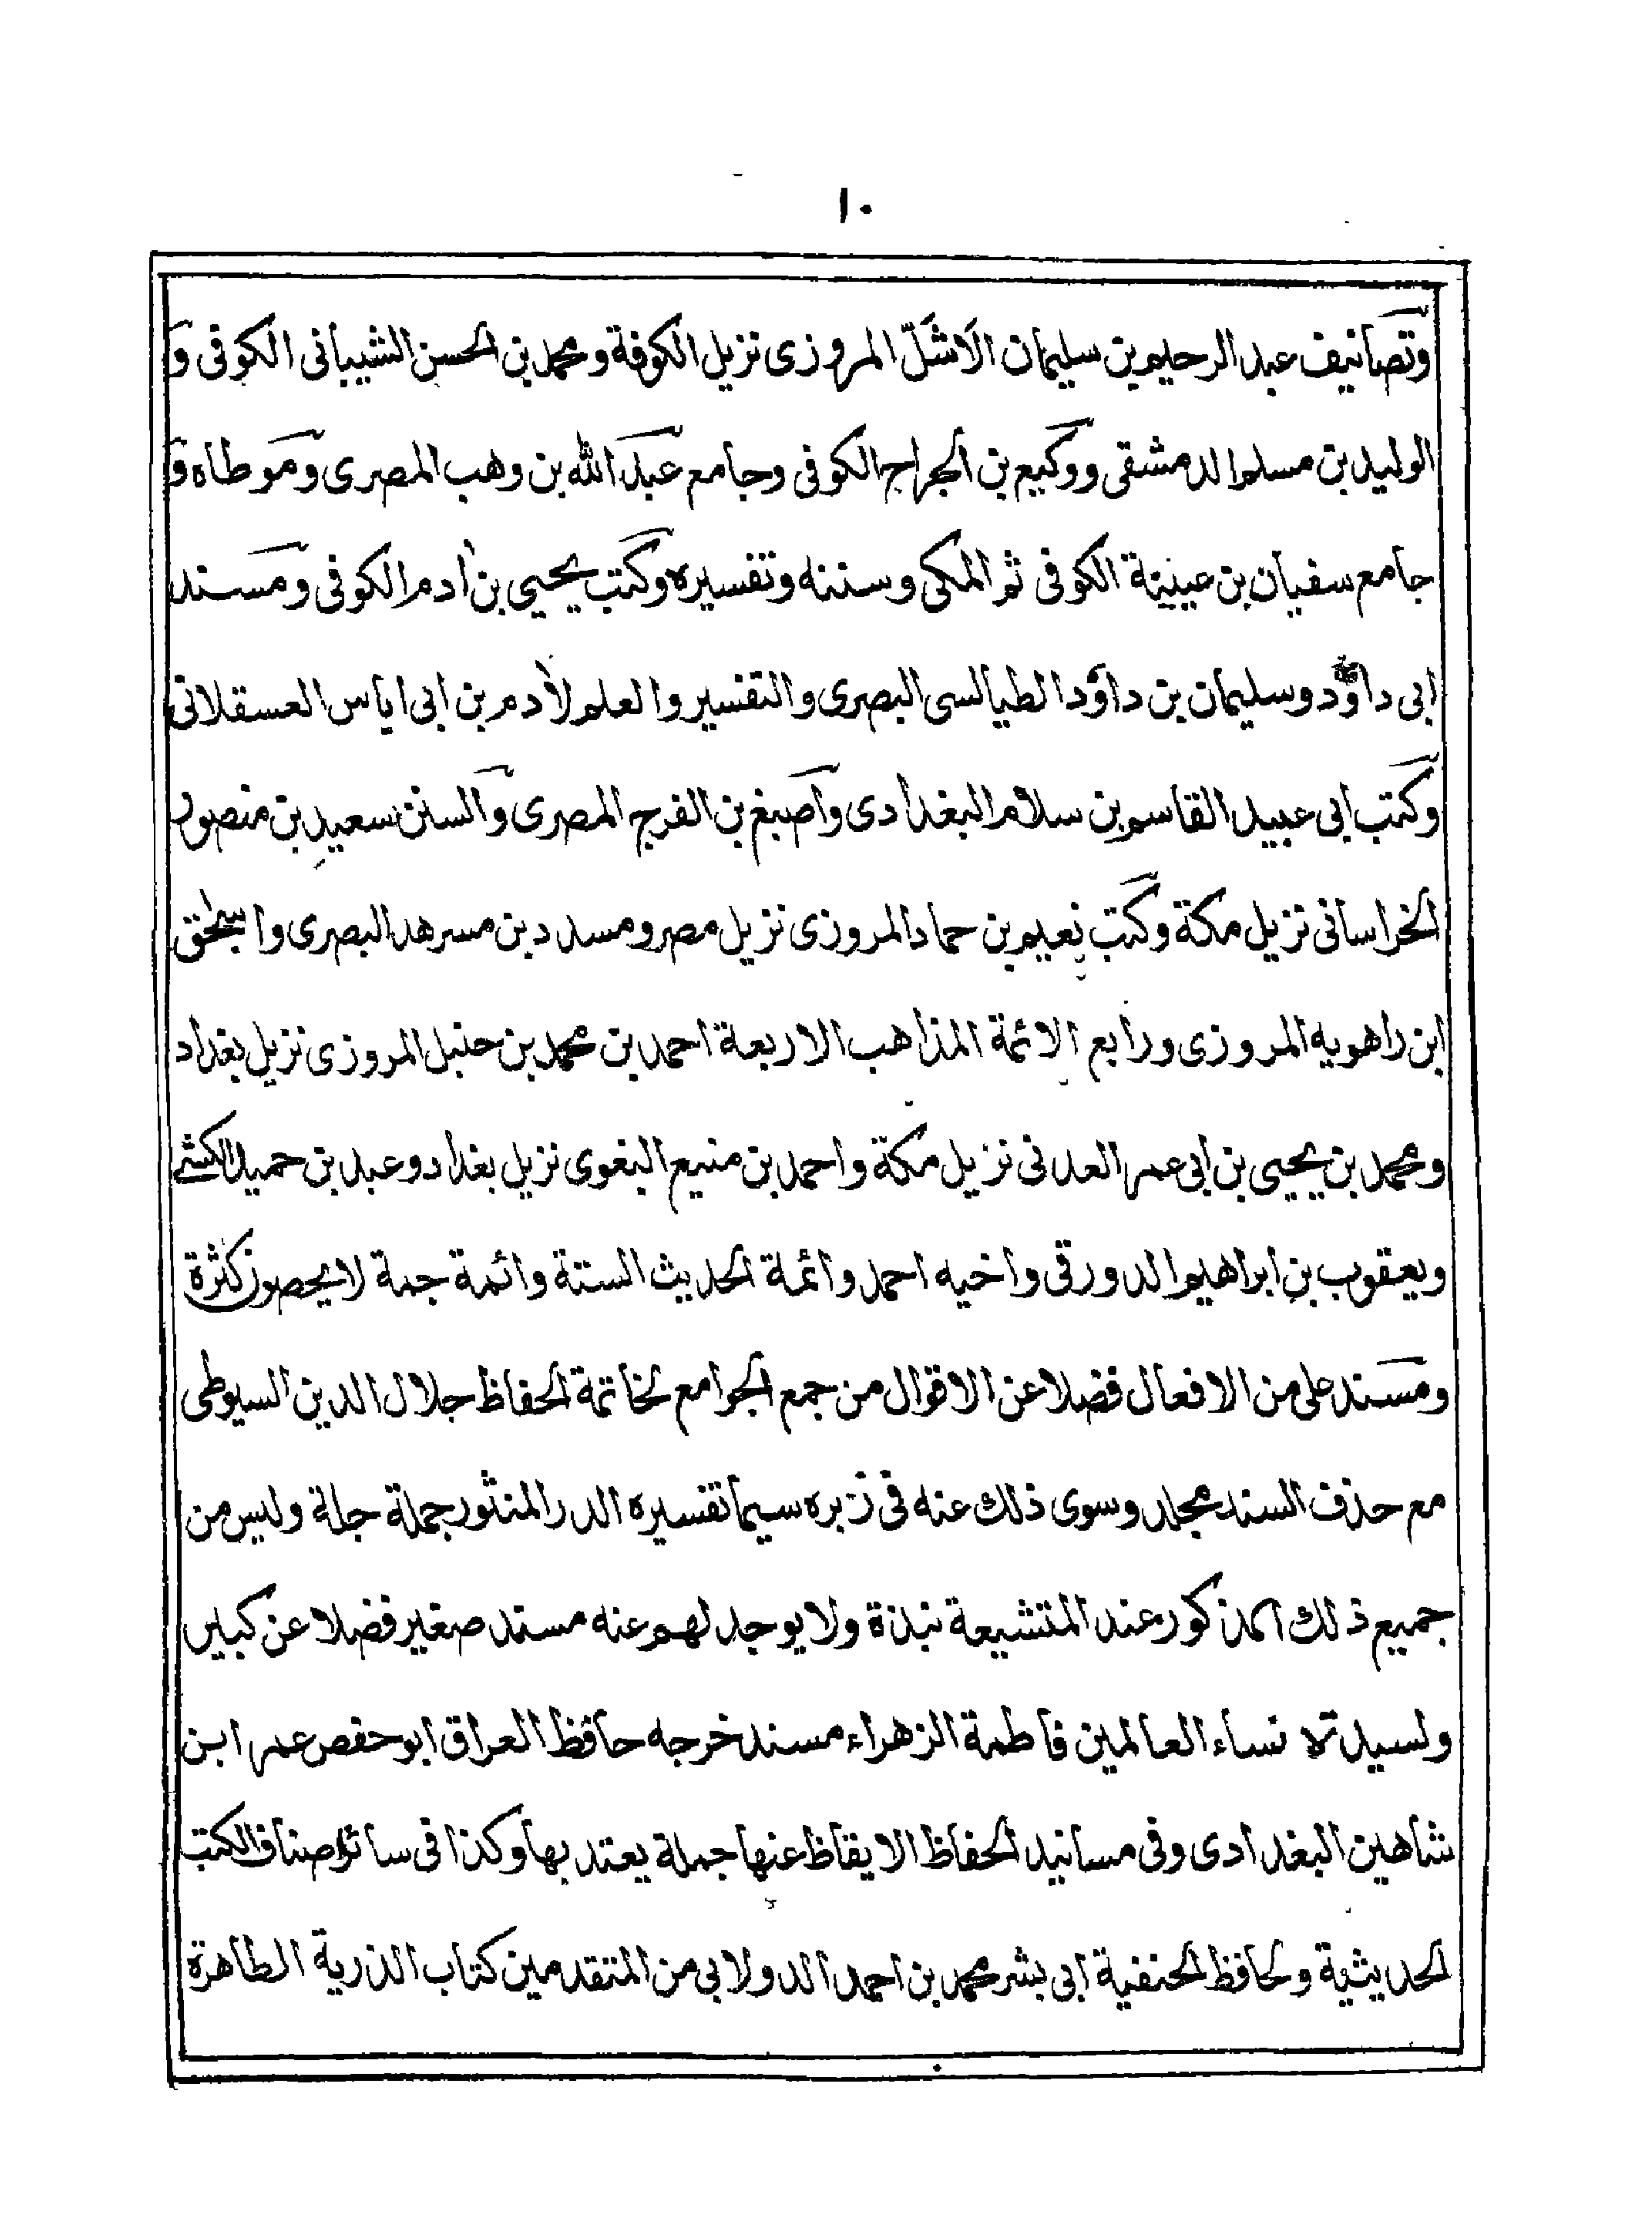 ١٠
وتصانيف عبد الرحيم بن سليمان الاشَلّ المروزى نزيل الكوفة ومحمد بن الحسن الشيبانى الكوفى و
الوليد بن مسلم الدمشقى ووكيع بن الجراح الكوفى وجامع عبد الله بن وهب المصرى وموطاه و
جامع سفيان بن عيينة الكوفى ثم المكى وسننه وتفسيره وكتب يحيى بن أدم الكوفى ومسند
ابى داؤد وسليمان بن داؤد الطيالسى البصرى والتفسير والعلم لأدم بن ابى اياس العسقلانى
وكتب ابى عبيد القاسم بن سلام البغدادى واصبغ بن الفرج المصرى والسنن سعيد بن منصور
الخراسانى نزيل مكة وكتب نعيم بن حماد المروزى نزيل مصر ومسدد بن مسرهد البصرى واسحٰق
ابن راهويه المروزى ورابع الائمة المذاهب الاربعة احمد بن محمد بن حنبل المروزى نزيل بغداد
ومحمد بن يحيى بن ابى عمر العدنى نزيل مكة واحمد بن منيع البغوى نزيل بغداد وعبد بن حميد الكشى
ويعقوب بن ابراهيم الدورقى واخيه احمد وائمة الحديث الستة وائمة جمة لا يحصون كثرة
ومسند على من الافعال فضلا عن الاقوال من جمع الجوامع لخاتمة الحفاظ جلال الدين السيوطى
مع حذف السند مجلد وسوى ذلك عنه فى زبره سيما تفسيره الدر المنثور جملة جلة وليس من
جميع ذلك المذكور عند المتشيعة نبذة ولا يوجد لهم عنه مسند صغير فضلا عن كبير
ولسيدة نساء العالمين فاطمة الزهراء مسند خرجه حافظ العراق ابو حفص عمر ابن
شاهين البغدادى وفى مسانيد الحفاظ الايقاظ عنها جملة يعتد بها وكذا فى سائر اصناف الكتب
الحديثية ولحافظ الحنفية ابى بشر محمد بن احمد الدولابى من المتقدمين كتاب الذرية الطاهرة